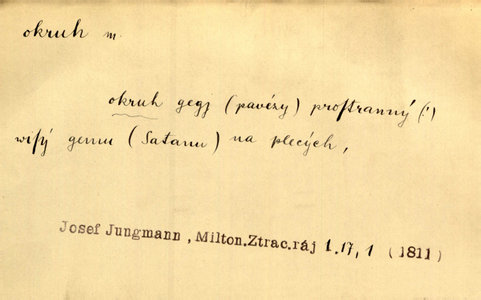 okruh m.
okruh gegj (pavézy) proſtranný (!)
wiſý gemu (Satanu) na plecých,
Josef Jungmann, Milton.Ztrac.ráj 1.17,1 (1811)